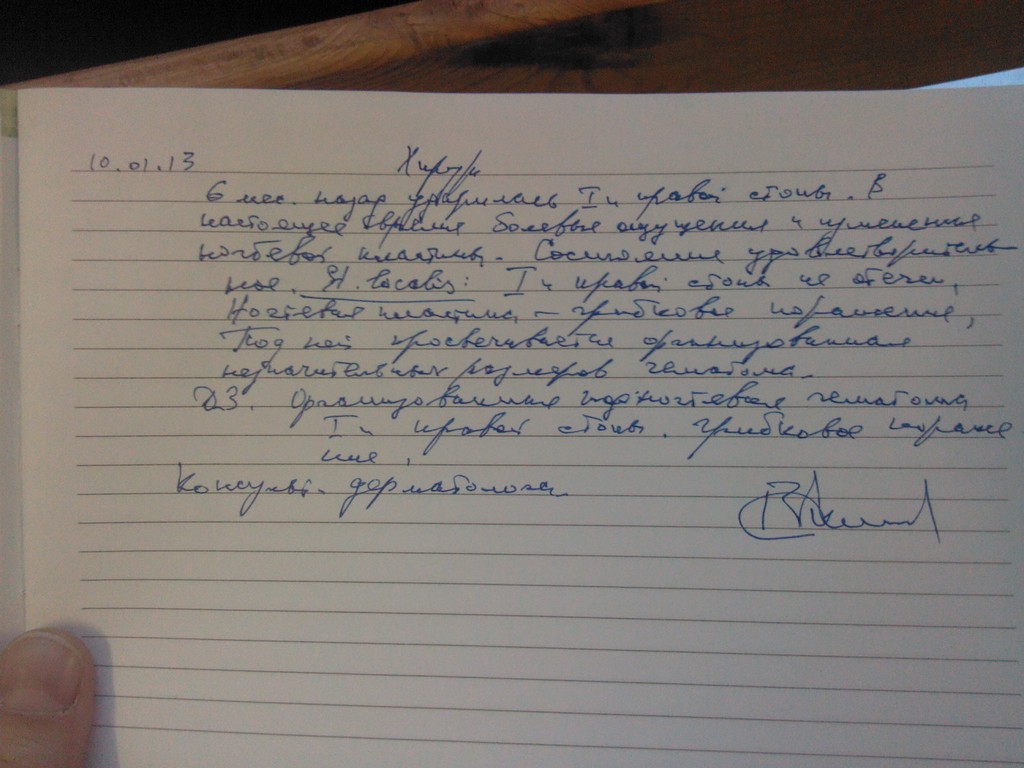 10.01.13 Хирург
6 мес. назад ударилась I п правой стопы. В
настоящее время болевые ощущения и изменения
ногтевой пластины. Состояние удовлетворитель-
ное. St. localis: I п правой стопы не отечен,
Ногтевая пластина – грибковое поражение,
Под ней просвечивается организованная
незначительных размеров гематома.
ДЗ. Организованная подногтевая гематома
I п правой стопы. Грибковое пораже
ние,
Консульт. дерматолога